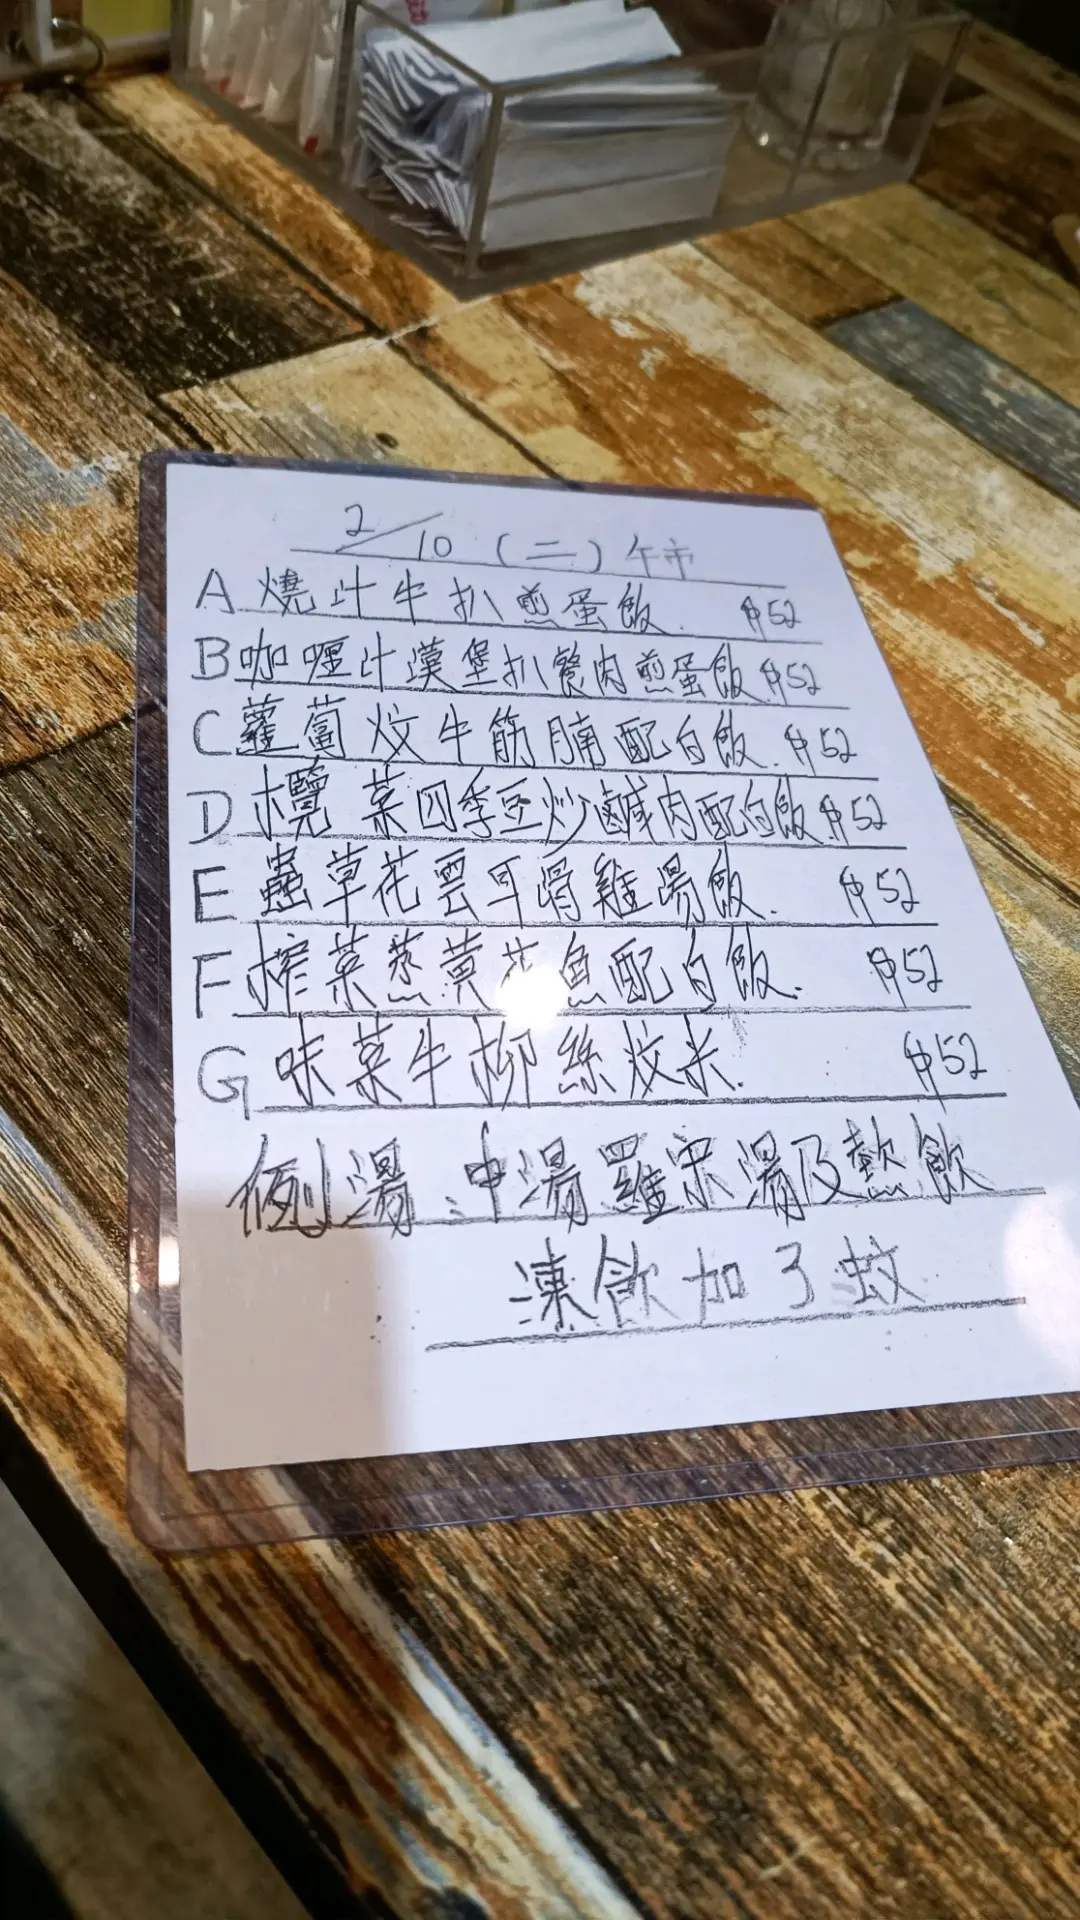 2/10 (二) 午市
A 燒汁牛扒煎蛋飯. $52
B 咖喱汁漢堡扒餐肉煎蛋飯 $52
C 蘿蔔炆牛筋腩配白飯. $52
D 欖菜四季豆炒鹹肉配白飯 $52
E 蟲草花雲耳滑雞湯飯. $52
F 榨菜蒸黃花魚配白飯. $52
G 味菜牛柳絲炆米. $52
例湯:中湯羅宋湯及熱飲
凍飲加3蚊